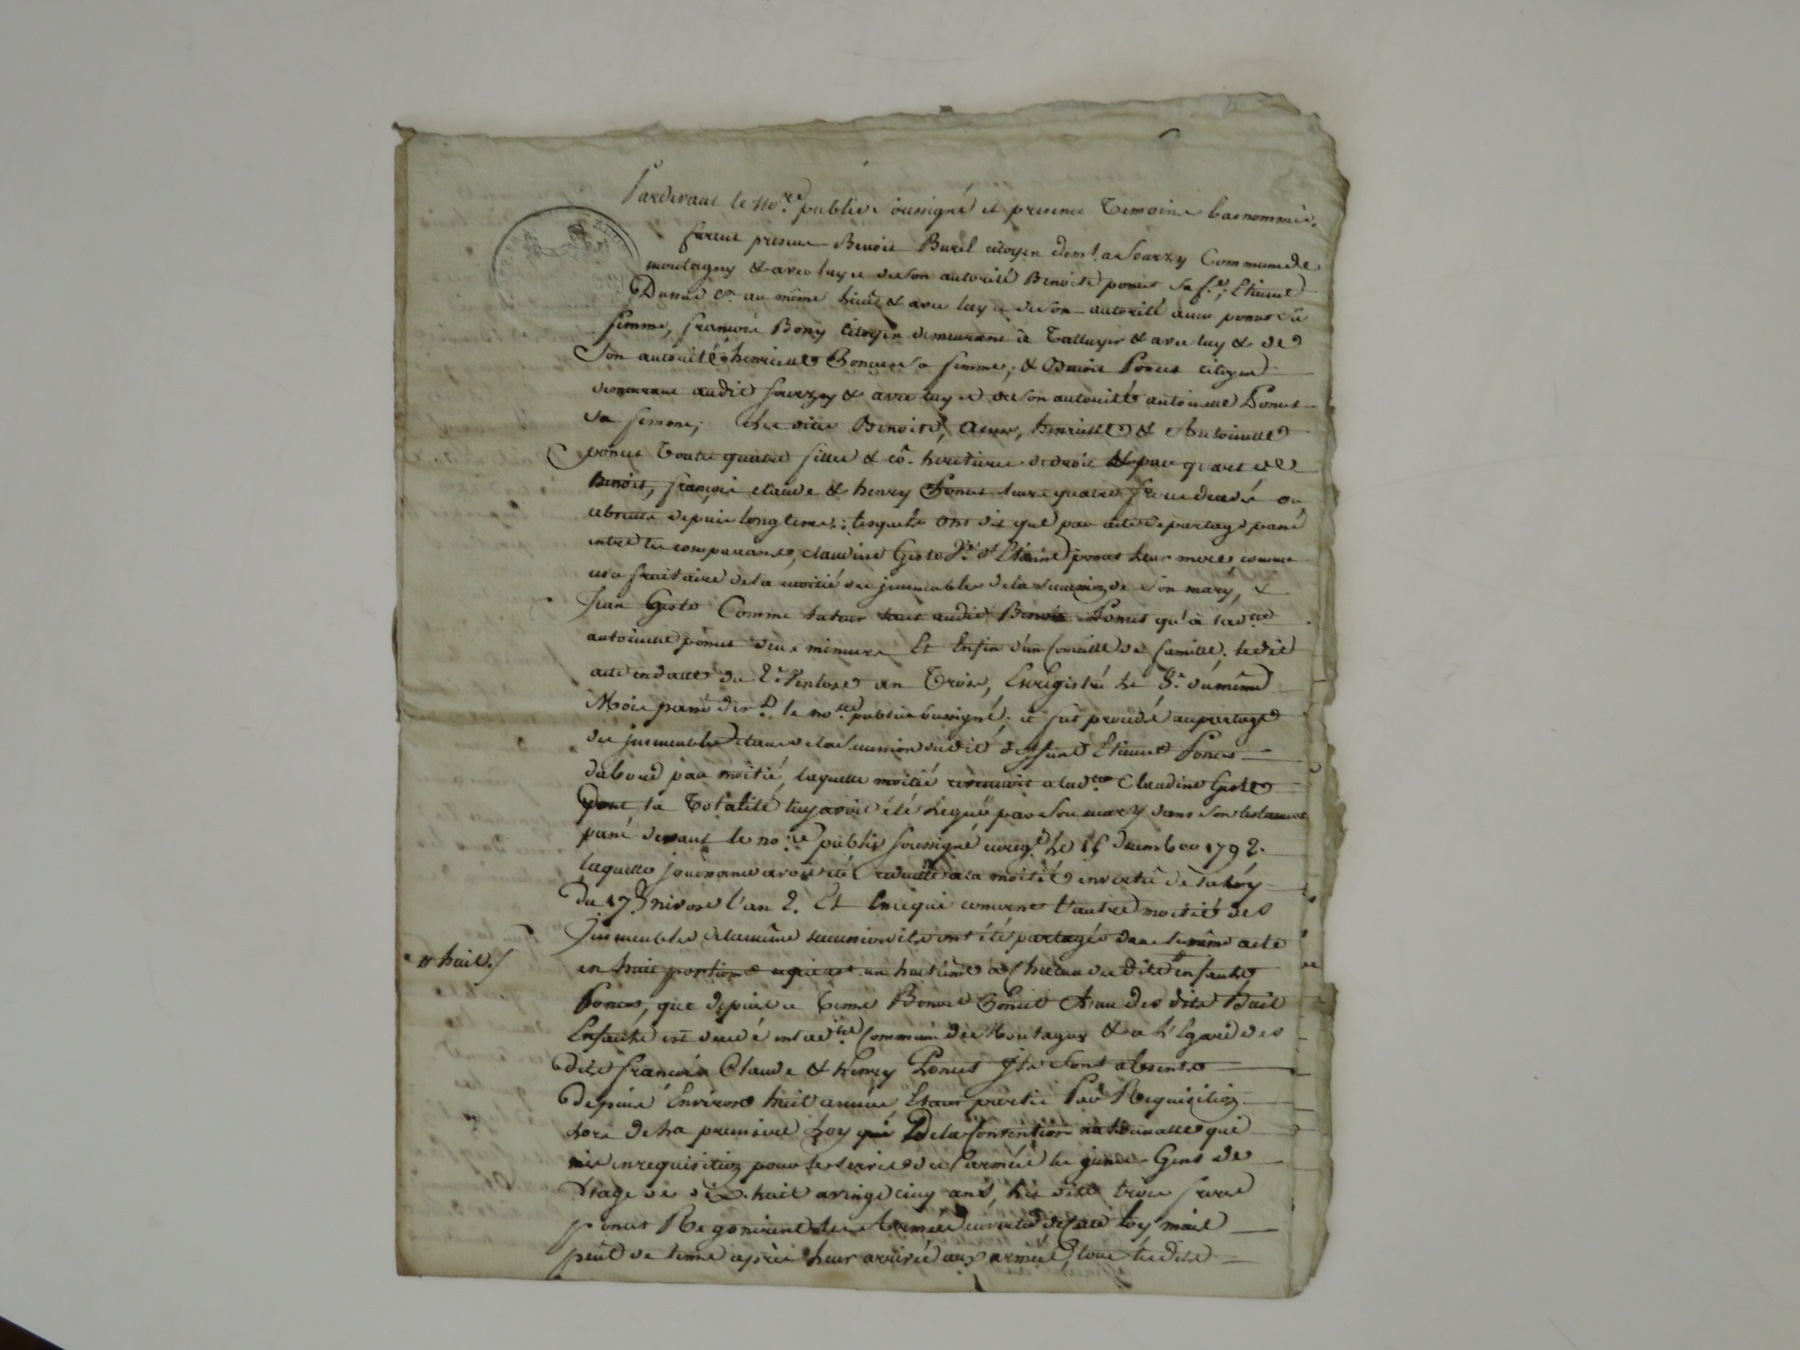 Pardevant le no.re public soussigné et presence Temoins basnommés.
furent presents Benoit Buril citoyen dem.t a Sourzy Commune de
montagny & avec luy & de son autorité Benoite poncet sa f.e; Etienne
au même lieu & avec luy & de son autorité poncet sa
femme, francois Bony Citoyen demeurant à Talluyer & avec luy & de
Son autorité henriette Poncet sa femme; & Benoit Poncet citoyen
demeurant audit Sourzy & avec luy & de son autorité antoinette Poncet
sa femme; les dites Benoite, henriette & Antoinette
poncet Toutes quatre filles & cô. heritieres de droit & par quart de
Benoit, françois claude & henry Poncet leurs quatre freres decedés ou
absents depuis longtems; lesquels ont dit que par acte de partage passé
entre les comparants, claudine Giste V.e d'Etienne poncet leur mere, comme
usufruitaire de la moitié des jmmeubles de la succession de son mary, &
Jean Giste Comme tuteur tant audit Benoit Poncet qu'à lad.te
antoinette poncet deux mineurs Et Enfin d'un Conseille de famille. ledit
acte en datte du 2.e Ventose an Trois, Enregistré le 8.e du même
Mois passé le no.re public soussigné. il fut procedé au partage
des jmmeubles de la succession dudit deffunt Etienne Poncet
dabord par moitié, laquelle moitié a lad.te Claudine Giste
dont la Totalité luy avoit été leguée par Son mary dans Son testament
passé devant le no.re public soussigné enreg.é le 15 decembre 1792.
laquelle jouissance avoit été reduitte a la moitié en vertu de la loy
du 17 nivose l'an 2. Et En ce qui concerne l'autre moitié des
Jmmeubles de la même succession ils ont été partagés dans le même acte
# huit
en huit portions un huitième a Chacun des dits Enfants
Poncet, que depuis ce Tems Benoit Poncet des dits huit
Enfants est decedé en lad.te Commune de Montagny & a L'Egard des
dits francois Claude & henry Poncet Ils sont absents
Depuis Environ huit années Etant partis Par Requisition
lors de La premiere Loy de la Convention nationalle qui
mis en requisition pour le service de l'armée les jeunes Gens de
l'age de dix huit a vingt cinq ans, les dits trois freres
poncet Rejoignirent les Armées en vertu de Cette loy, mais
peut de tems après leur arrivée aux armées, tous les dits